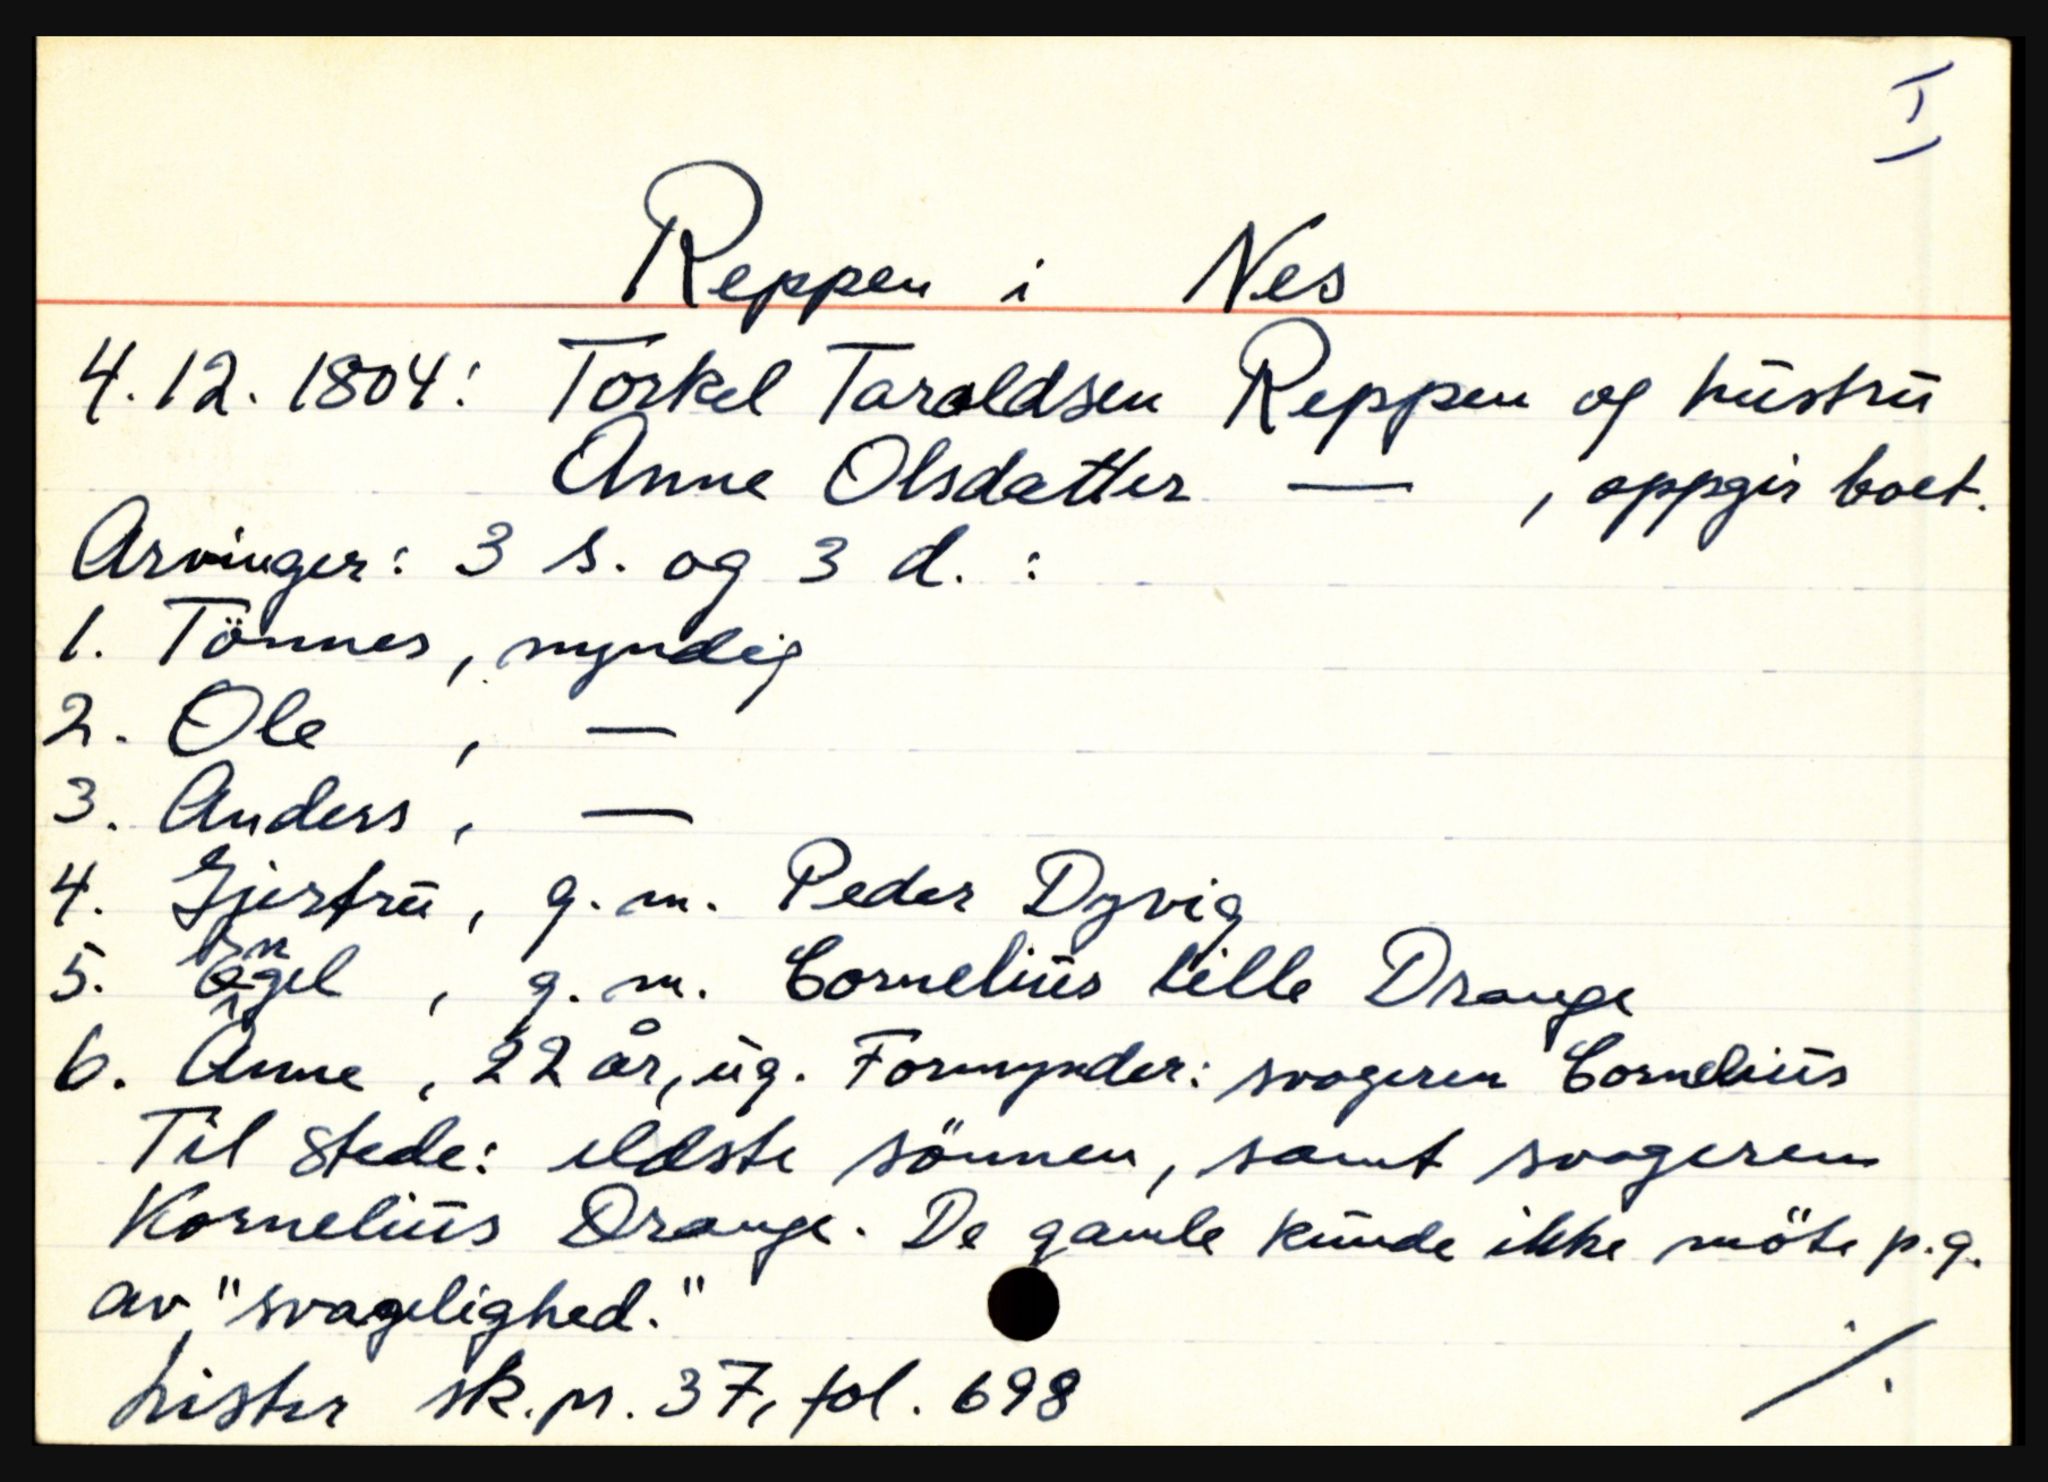 I
Reppen i Nes
4.12.1804: Torkel Taraldsen Reppen og hustru
Anne Olsdatter — , oppgir boet.
Arvinger: 3 s. og 3 d. :
1. Tönnes, myndig
2. Ole , —
3. Anders , —
4. Gjertru , g. m. Peder Dyvig
n
5. Engel , g. m. Cornelius lille Drange
6. Anne , 22 år, ug. Formynder: svogeren Cornelius
Til stede: eldste sönnen, samt svogeren
Kornelius Drange. De gamle kunde ikke möte p.g.
av "svagelighed."
Lister sk.pr. 37, fol. 698
./.